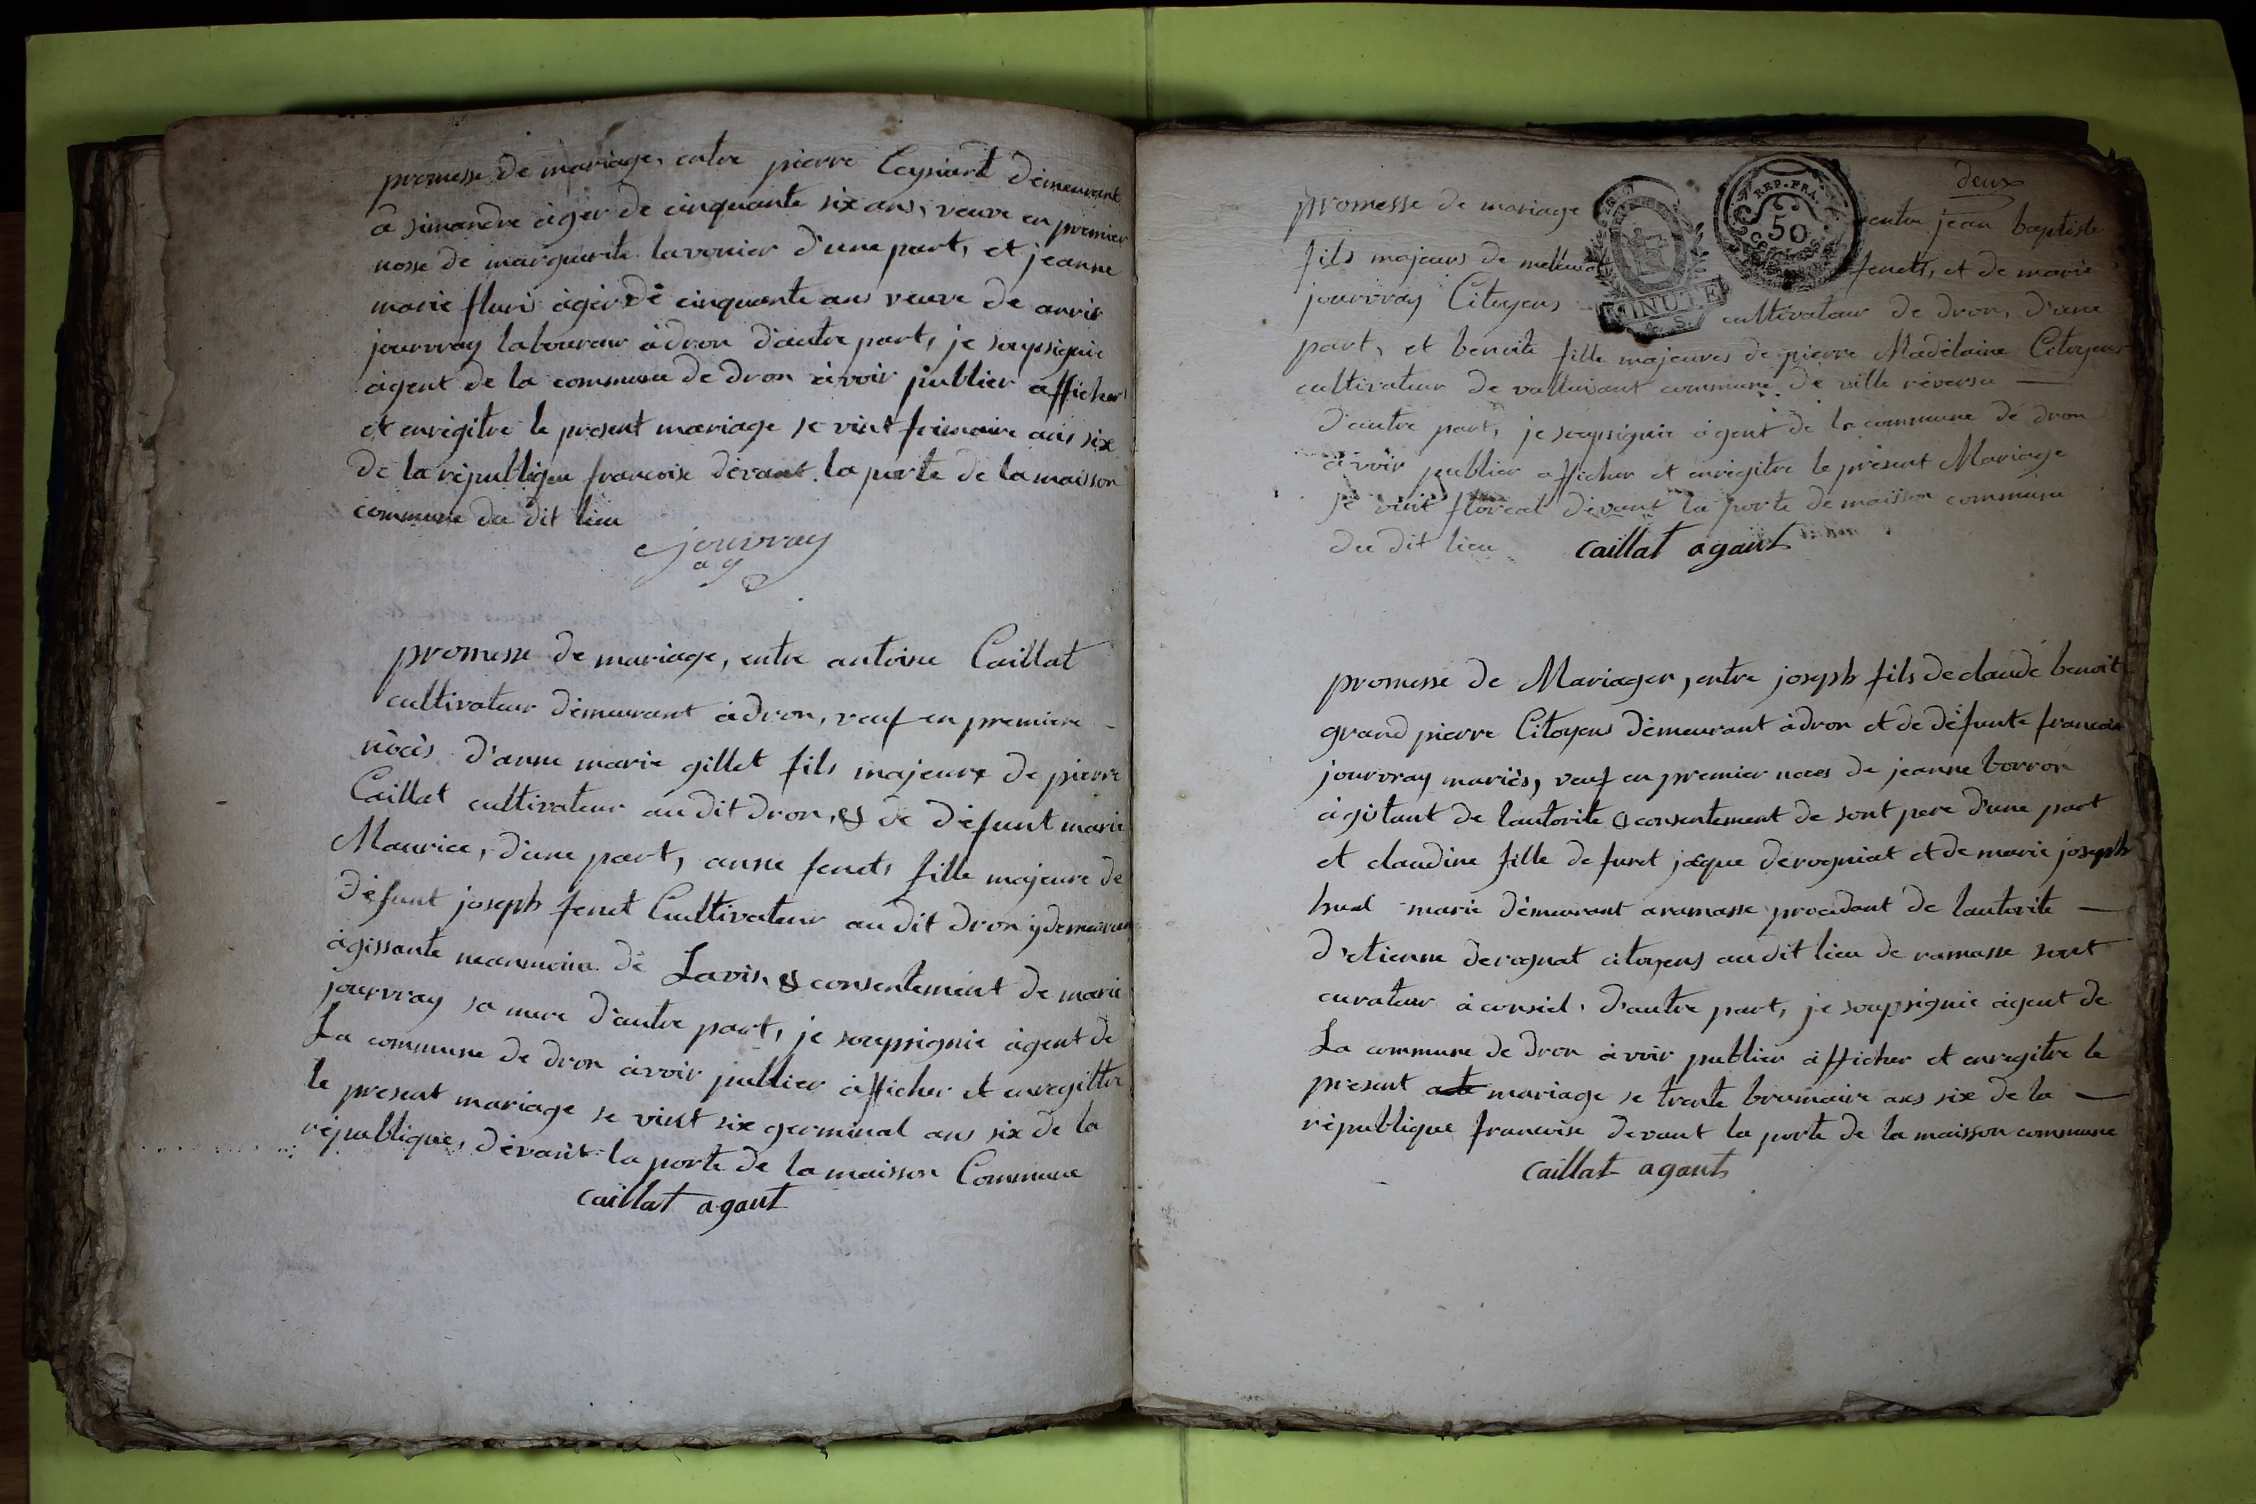 promesse de mariage, entre pierre Ceyziart demeurant
a simandre àger de cinquante six ans, veuve en premier
nosse de marguerite lavenier d'une part, et jeanne
marie fluri àger de cinquante ans veuve de
jourvray laboureur àdron d'autre part, je soupsignie
àgent de la commune de dron àvoir publier afficher
et enregitre le present mariage se vint frimaire ans six
de la républiqeu francoise dévant la porte de la maisson
commune du dit lieu
jouvray
ag
promesse de mariage, entre antoine Caillat
cultivateur démeurant àdron, veuf en premiere
nòces d'anne marie gillet fils majeure de pierre
Caillat cultivateur au dit dron, & de défunt marie
Maurice, d'une part, anne fenet, fille majeure de
défunt joseph fenet Cultivateur au dit dron ydemeurent
àgissante neanmoin de Lavis, & consentement de marie
jourvray sa mere d'autre part, je soupsignie àgent de
La commune de dron àvoir publier àfficher et enregittre
le present mariage se vint six germinal ans six de la
république, dévant la porte de la maisson Commune
caillat agant
deux
REP. FRA.
50
CENTIMES
MINUTE
promesse de mariage entre jean baptiste
fils majeurs de fenet, et de marie
jourvray Citoyens cultivateur de dron, d'une
part, et benoite fille majeures de pierre Madelaine Citoyens
cultivateur de commune de ville réversu
d'autre part, je soupsignie àgent de la commune de dron
àvoir publier afficher et enregitre le présent Mariage
se vint floreal dévant la porte de maisson commune
du dit lieu caillat agant
promesse de Mariager, entre joseph fils de claude benoit
grand pierre Citoyens démeurant àdron et de défunte francoise
jourvray mariès, veuf en premier noces de jeanne borron
àgistant de lautorite & consentement de sont pere d'une part
et claudine fille defunt jaque derogniat et de marie joseph
marie démeurant aramasse procedant de lautorite
d'etienne derognat citoyens au dit lieu de ramasse sont
curateur à conseil, d'autre part, je soupsignie àgent de
La commune de dron àvoir publier àfficher et enregitre le
present acte mariage se trente brumaire ans six de la
république francoise devant la porte de la maisson commune
caillat agant